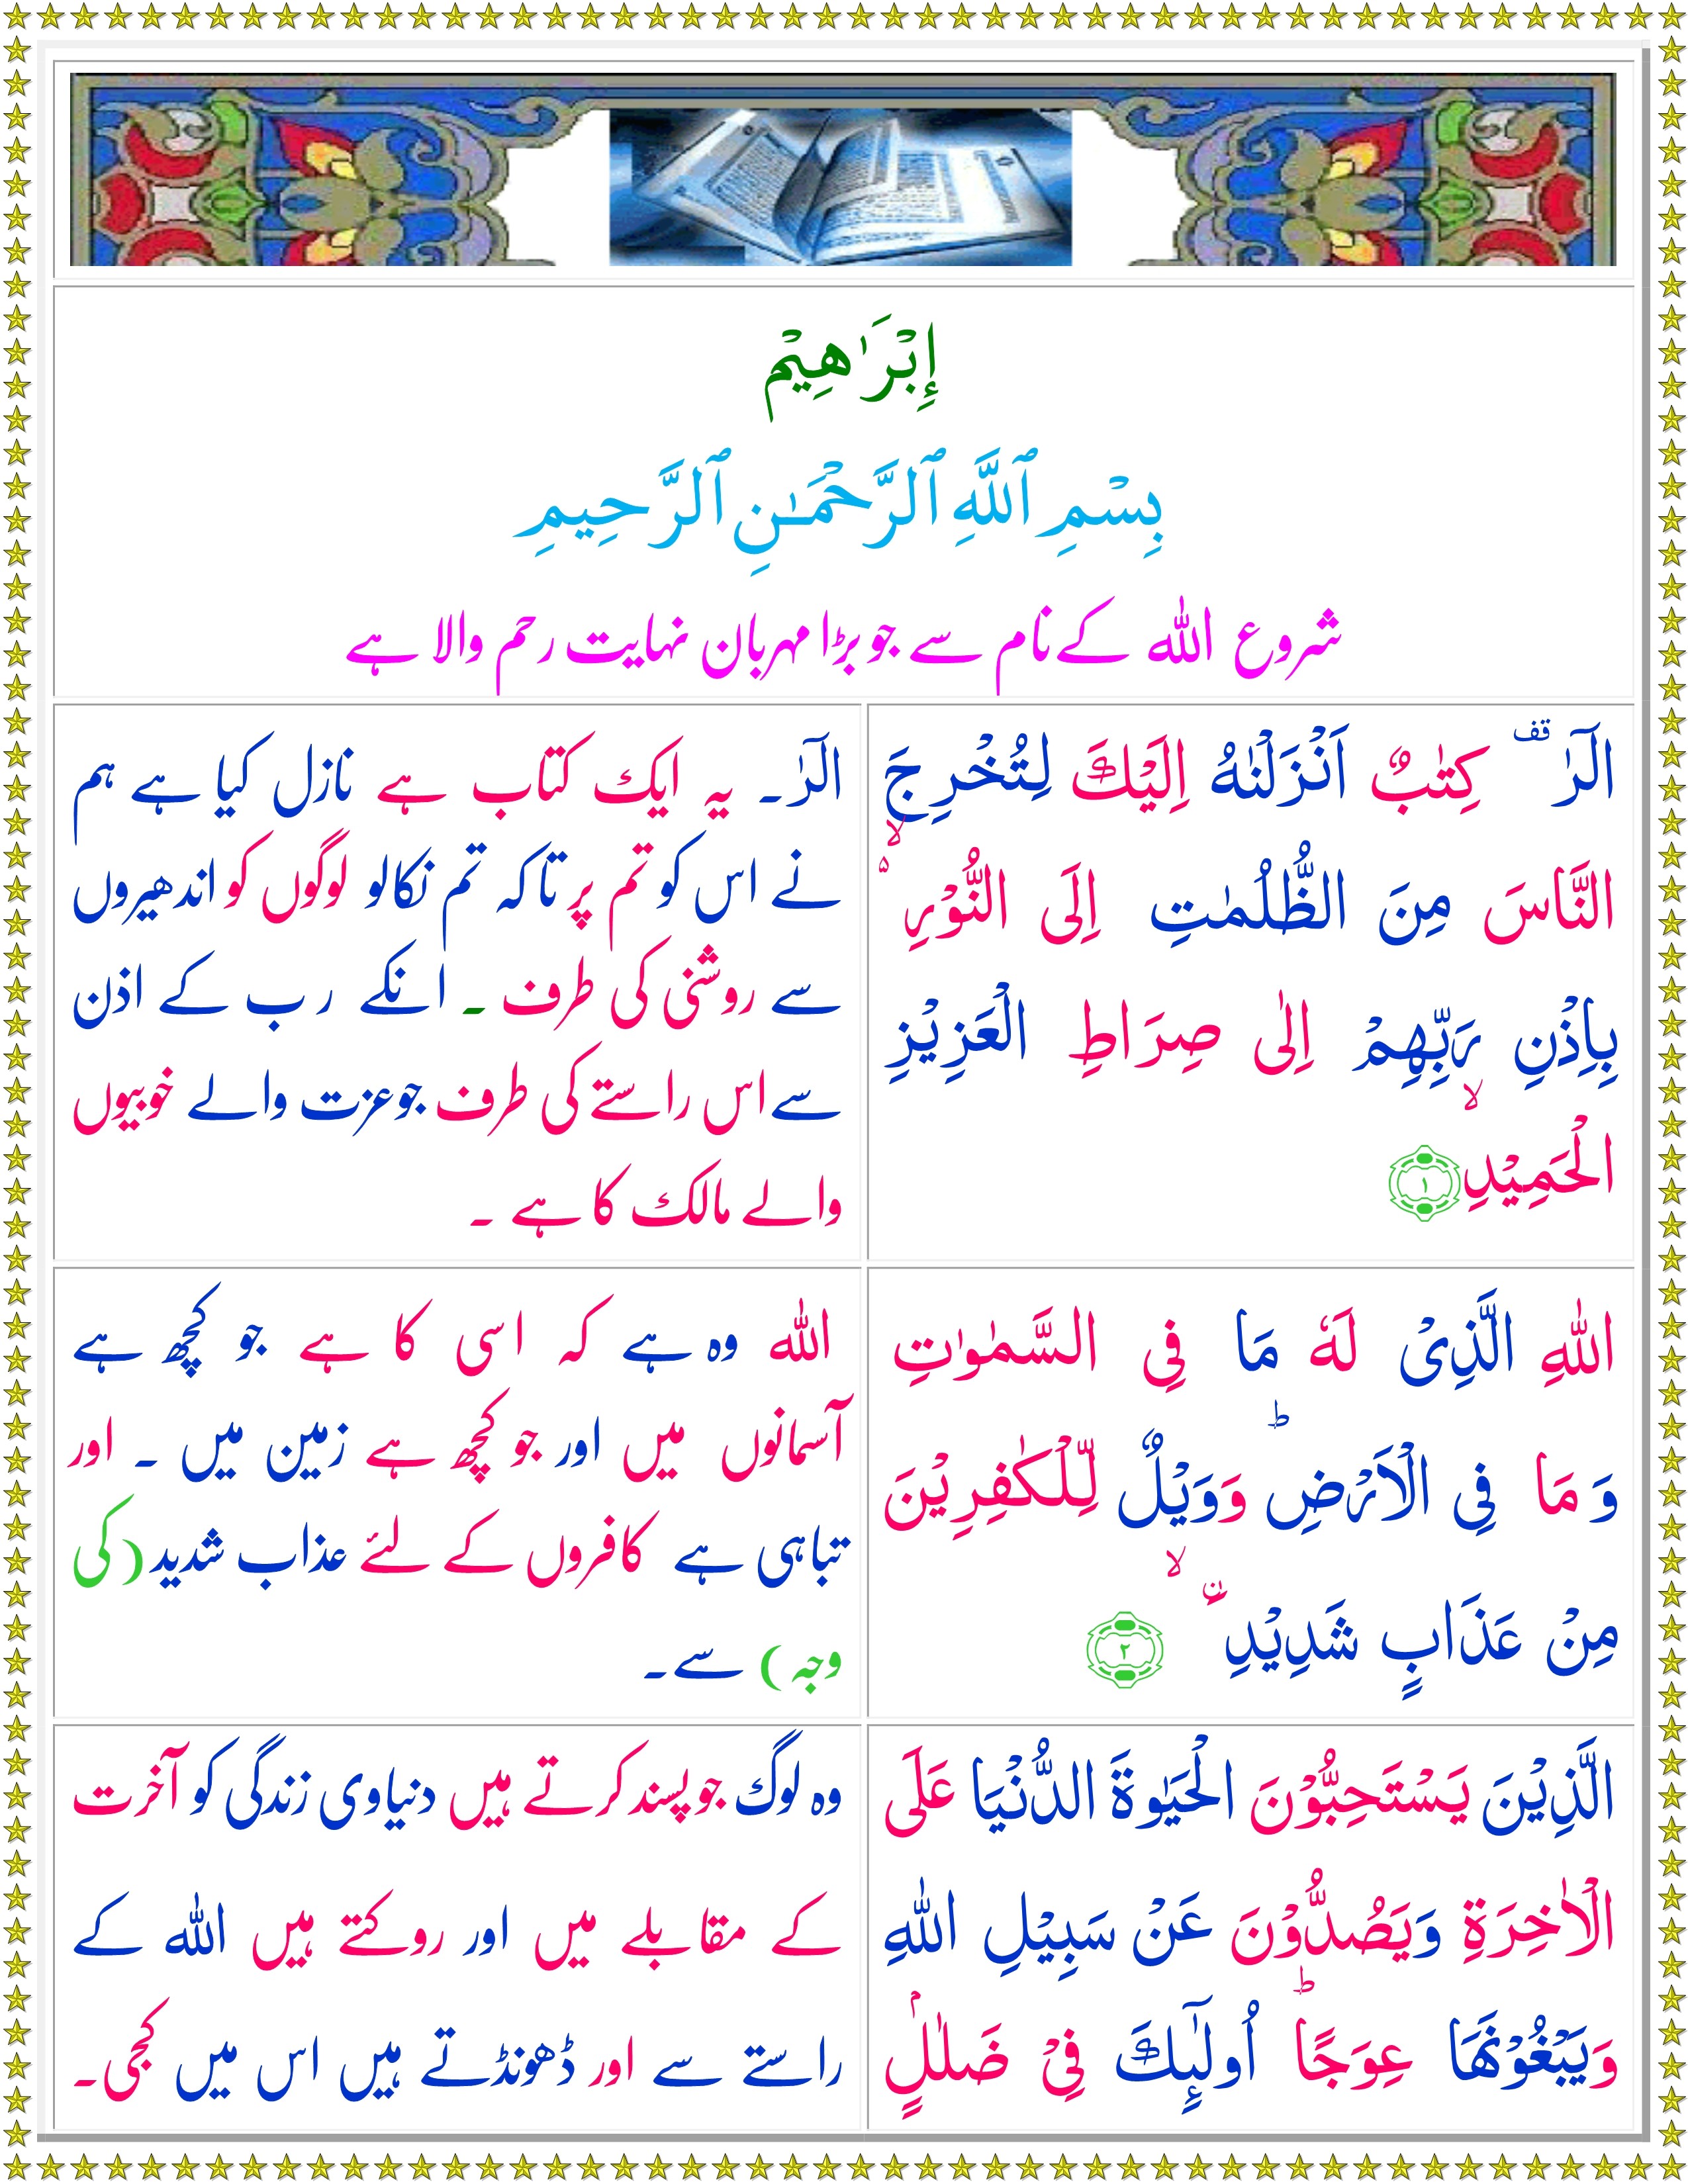 إِبْرَٰهِيْم
بِسْمِ ٱللَّهِ ٱلرَّحْمَـٰنِ ٱلرَّحِيمِ
شروع اللہ کے نام سے جو بڑا مہربان نہایت رحم والا ہے
الٓرٰ ۫ قف كِتٰبٌ اَنْزَلْنٰهُ اِلَيْكَ لِتُخْرِجَ
النَّاسَ مِنَ الظُّلُمٰتِ اِلَى النُّوْرِ ۙ۬
بِاِذْنِ رَبِّهِمْ اِلٰى صِرَاطِ الْعَزِيْزِ
الْحَمِيْدِۙ ۱
الٓرٰ۔ یہ ایک کتاب ہے نازل کیا ہے ہم
نے اس کو تم پر تاکہ تم نکالو لوگوں کو اندھیروں
سے روشنی کی طرف ۔ انکے رب کے اذن
سے اس راستے کی طرف جو عزت والے خوبیوں
والے مالک کا ہے ۔
اللهِ الَّذِىْ لَهٗ مَا فِى السَّمٰوٰتِ
وَ مَا فِى الْاَرْضِ ؕ وَوَيْلٌ لِّلْكٰفِرِيْنَ
مِنْ عَذَابٍ شَدِيْدِ ۙ۟ ۲
اللہ وہ ہے کہ اسی کا ہے جو کچھ ہے
آسمانوں میں اور جو کچھ ہے زمین میں ۔ اور
تباہی ہے کافروں کے لئے عذاب شدید (کی
وجہ) سے۔
الَّذِيْنَ يَسْتَحِبُّوْنَ الْحَيٰوةَ الدُّنْيَا عَلَى
الْاٰخِرَةِ وَيَصُدُّوْنَ عَنْ سَبِيْلِ اللهِ
وَيَبْغُوْنَهَا عِوَجًا ؕ اُولٰٓٮِٕكَ فِىْ ضَلٰلٍۢ
وہ لوگ جو پسند کرتے ہیں دنیاوی زندگی کو آخرت
کے مقابلے میں اور روکتے ہیں اللہ کے
راستے سے اور ڈھونڈتے ہیں اس میں کجی۔